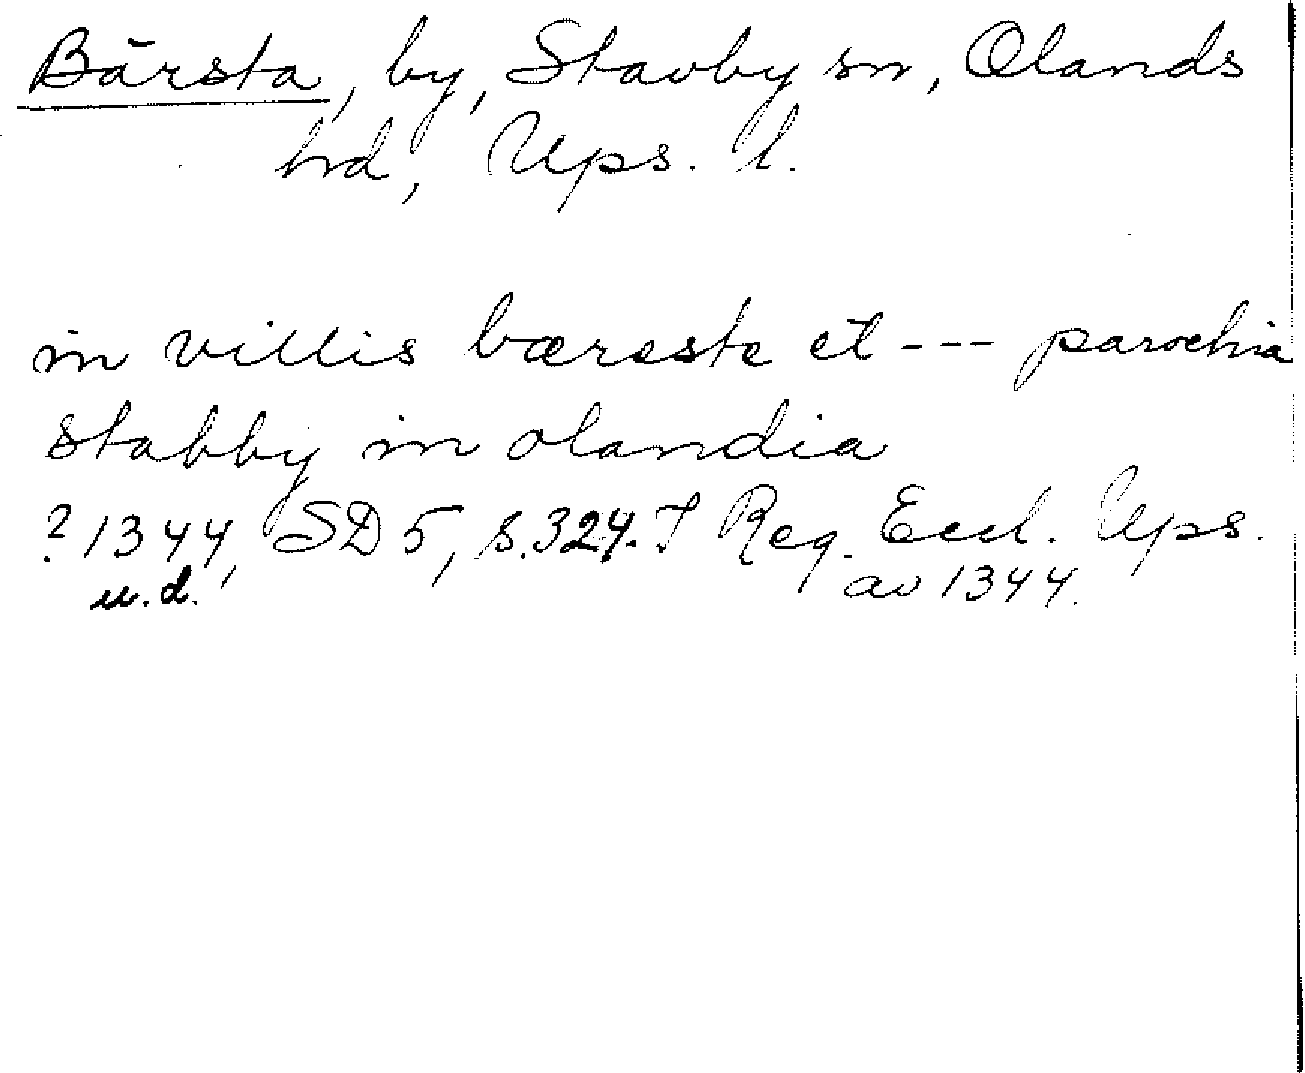 Bärsta, by, Stavby sn, Olands
hd, Ups. l.
in villis bæreste et --- parochia
stabby in olandia
? 1344, SD 5, s. 324. I Reg. Eccl. Ups.
u.d. av 1344.